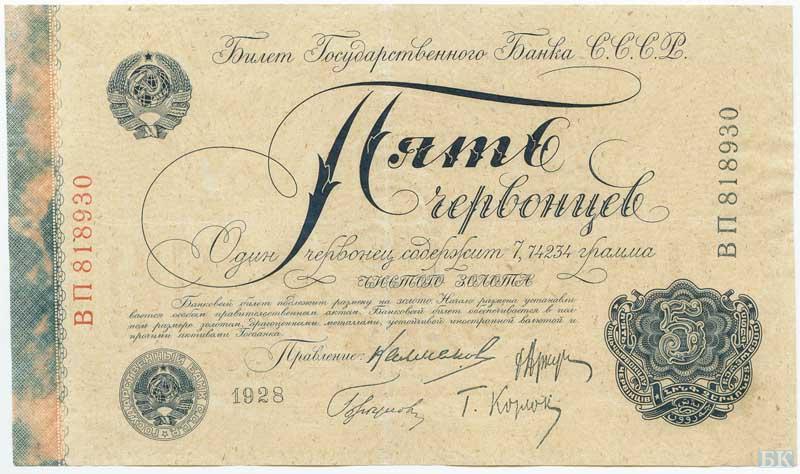 Билет Государственного Банка С.С.С.Р.
Пять
червонцев
Один червонец содержит 7,74234 грамма
ЧИСТОГО ЗОЛОТА
Банковый билет подлежит размену на золото. Начало размена устанавли-
вается особым правительственным актом. Банковый билет обеспечивается в пол-
ном размере золотом, драгоценными металлами, устойчивой иностранной валютой и
прочими активами Госбанка.
Правление:
1928
ВП 818930
ВП 818930
5
БК